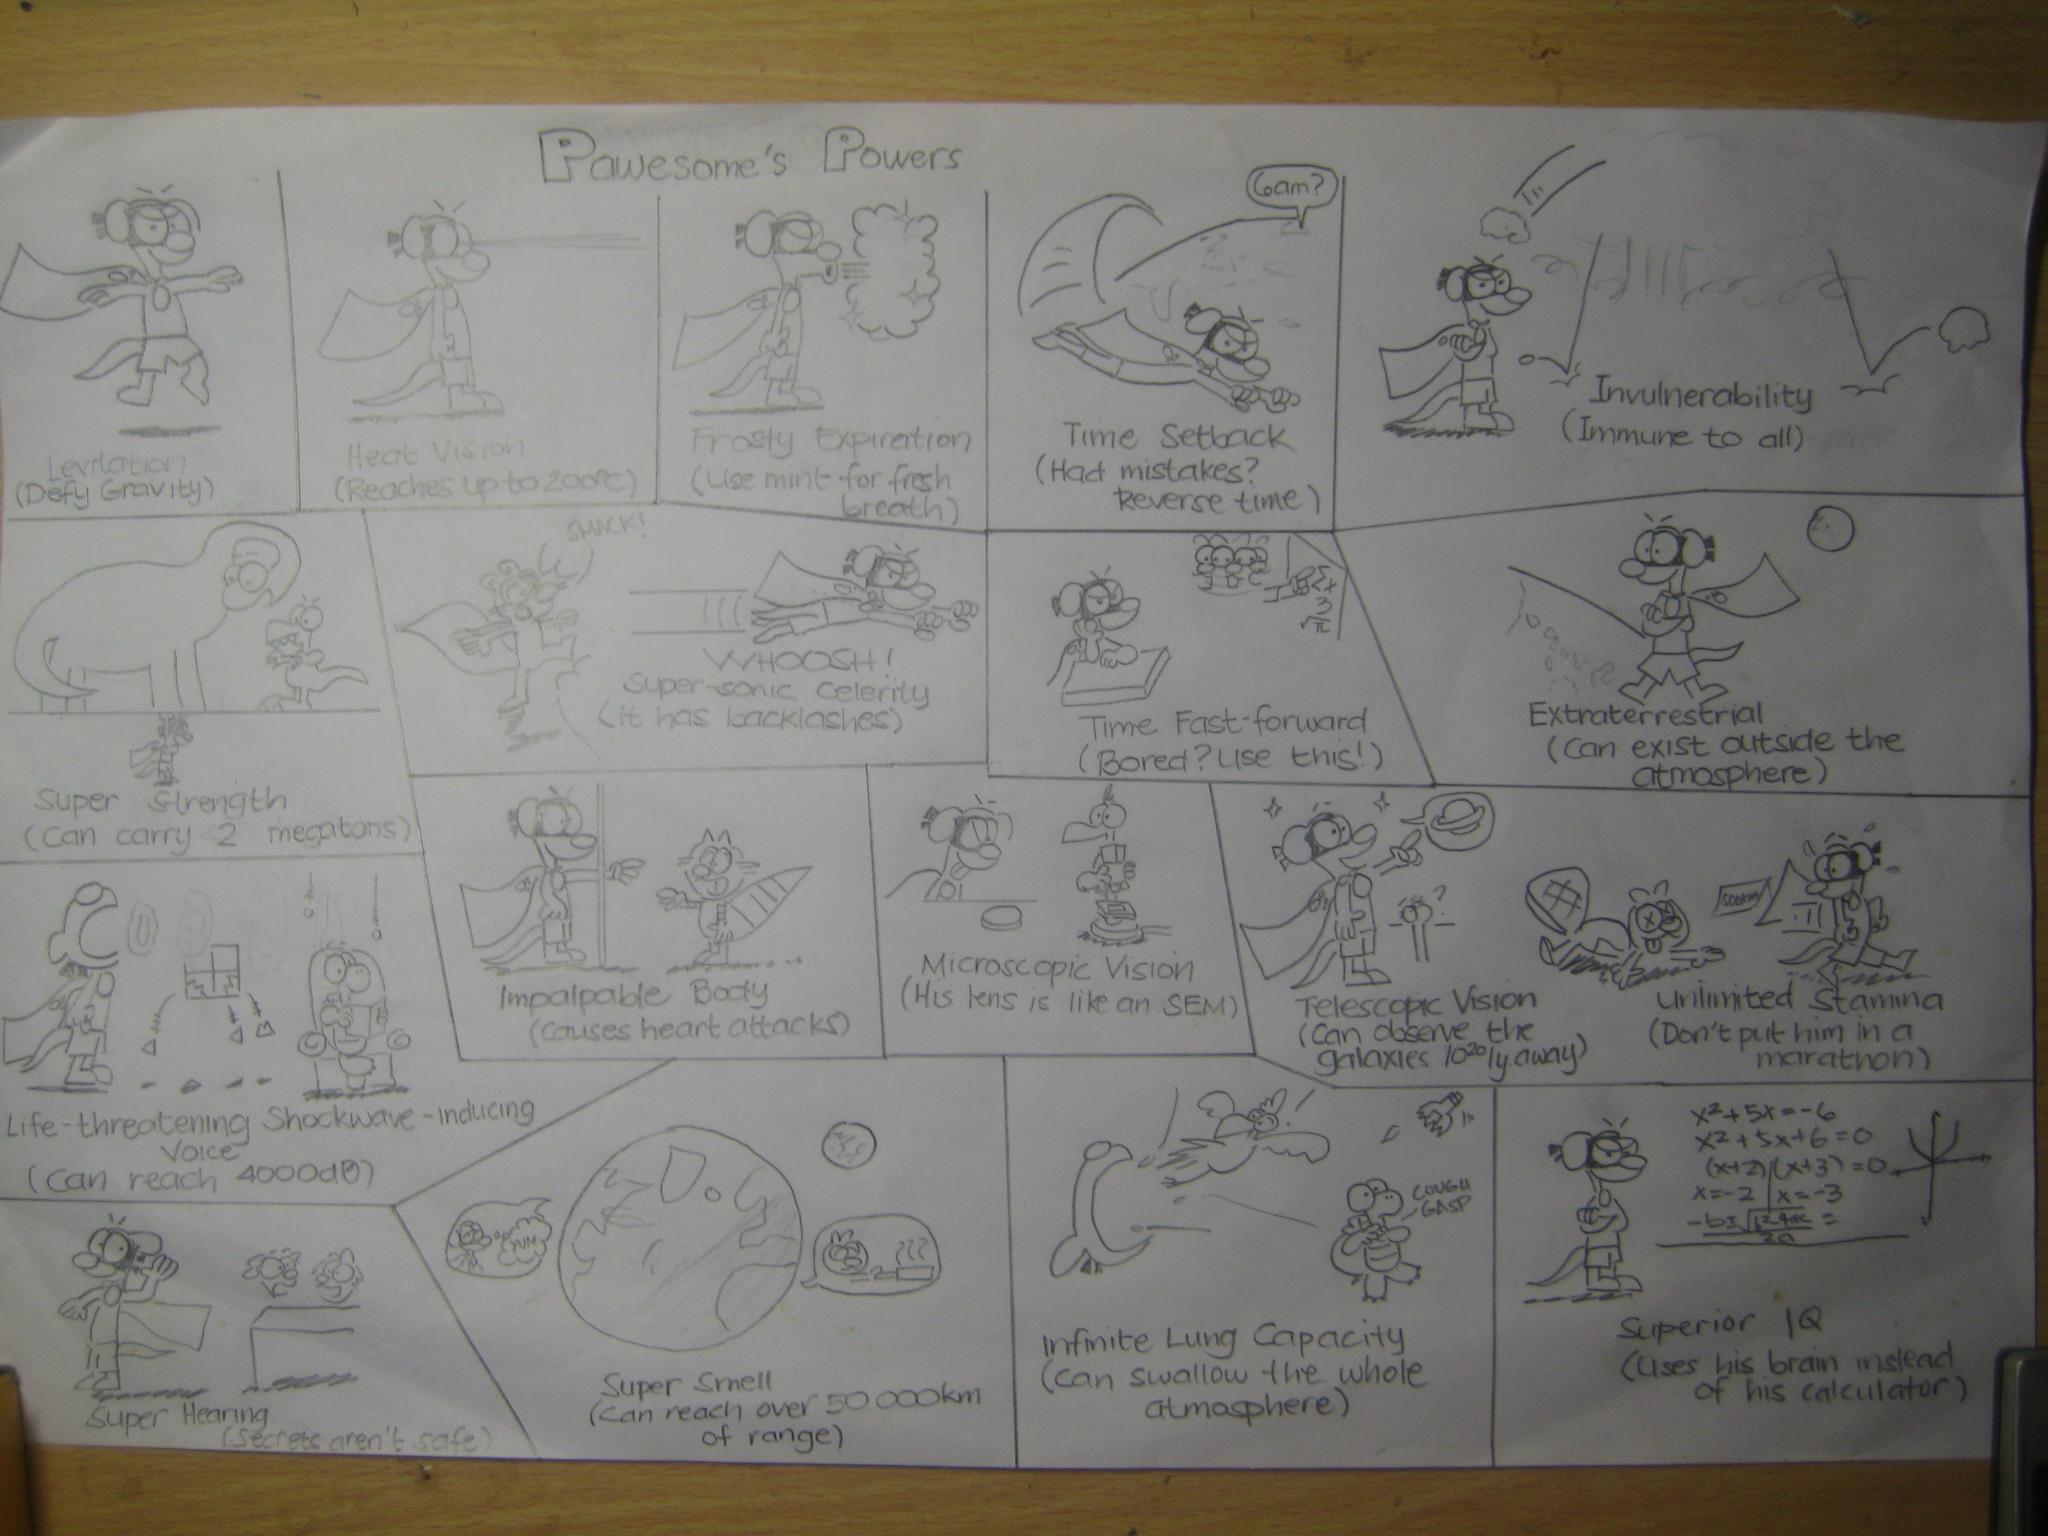 Pawesome's Powers
Levitation
(Defy Gravity)
Heat Vision
(Reaches up to 200°C)
Frosty Expiration
(Use mint for fresh
breath)
6am?
Time Setback
(Had mistakes?
Reverse time)
Invulnerability
(Immune to all)
Super Strength
(Can carry 2 megatons)
SMACK!
WHOOSH!
Super-sonic Celerity
(It has backlashes)
Time Fast-forward
(Bored? Use this!)
Extraterrestrial
(Can exist outside the
atmosphere)
Life-threatening Shockwave-inducing
Voice
(Can reach 4000dB)
Impalpable Body
(Causes heart attacks)
Microscopic Vision
(His lens is like an SEM)
?
Telescopic Vision
(Can observe the
galaxies 10²⁰ly. away)
500km
Unlimited Stamina
(Don't put him in a
marathon)
Super Hearing
(Secrets aren't safe)
YUM
???
Super Smell
(Can reach over 50 000km
of range)
COUGH
GASP
Infinite Lung Capacity
(Can swallow the whole
atmosphere)
x²+5x=-6
x²+5x+6=0
(x+2)(x+3)=0
x=-2 | x=-3
Superior IQ
(Uses his brain instead
of his calculator)